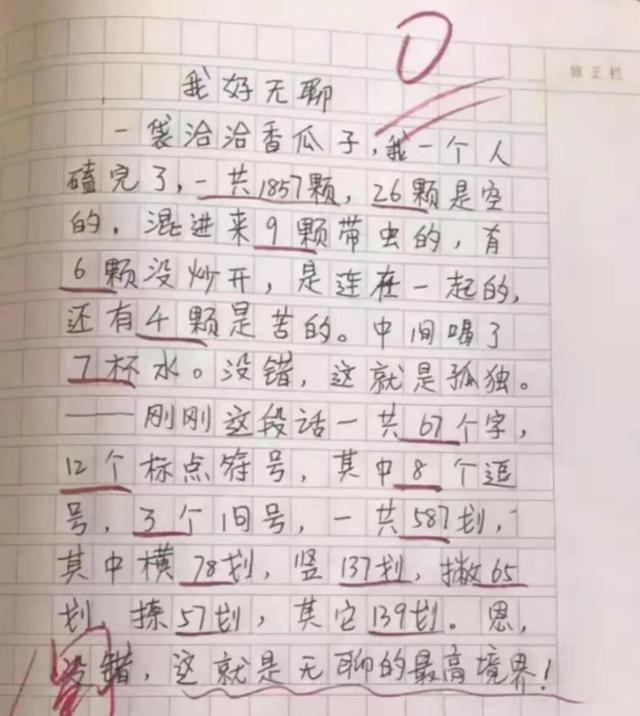 0
修正栏
我好无聊
一袋洽洽香瓜子,我一个人
磕完了,一共1857颗,26颗是空
的,混进来9颗带虫的,有
6颗没炒开,是连在一起的,
还有4颗是苦的。中间喝了
7杯水。没错,这就是孤独。
——刚刚这段话一共67个字,
12个标点符号,其中8个逗
号,3个句号,一共587划,
其中横78划,竖137划,撇65
划,捺57划,其它139划。恩,
没错,这就是无聊的最高境界!